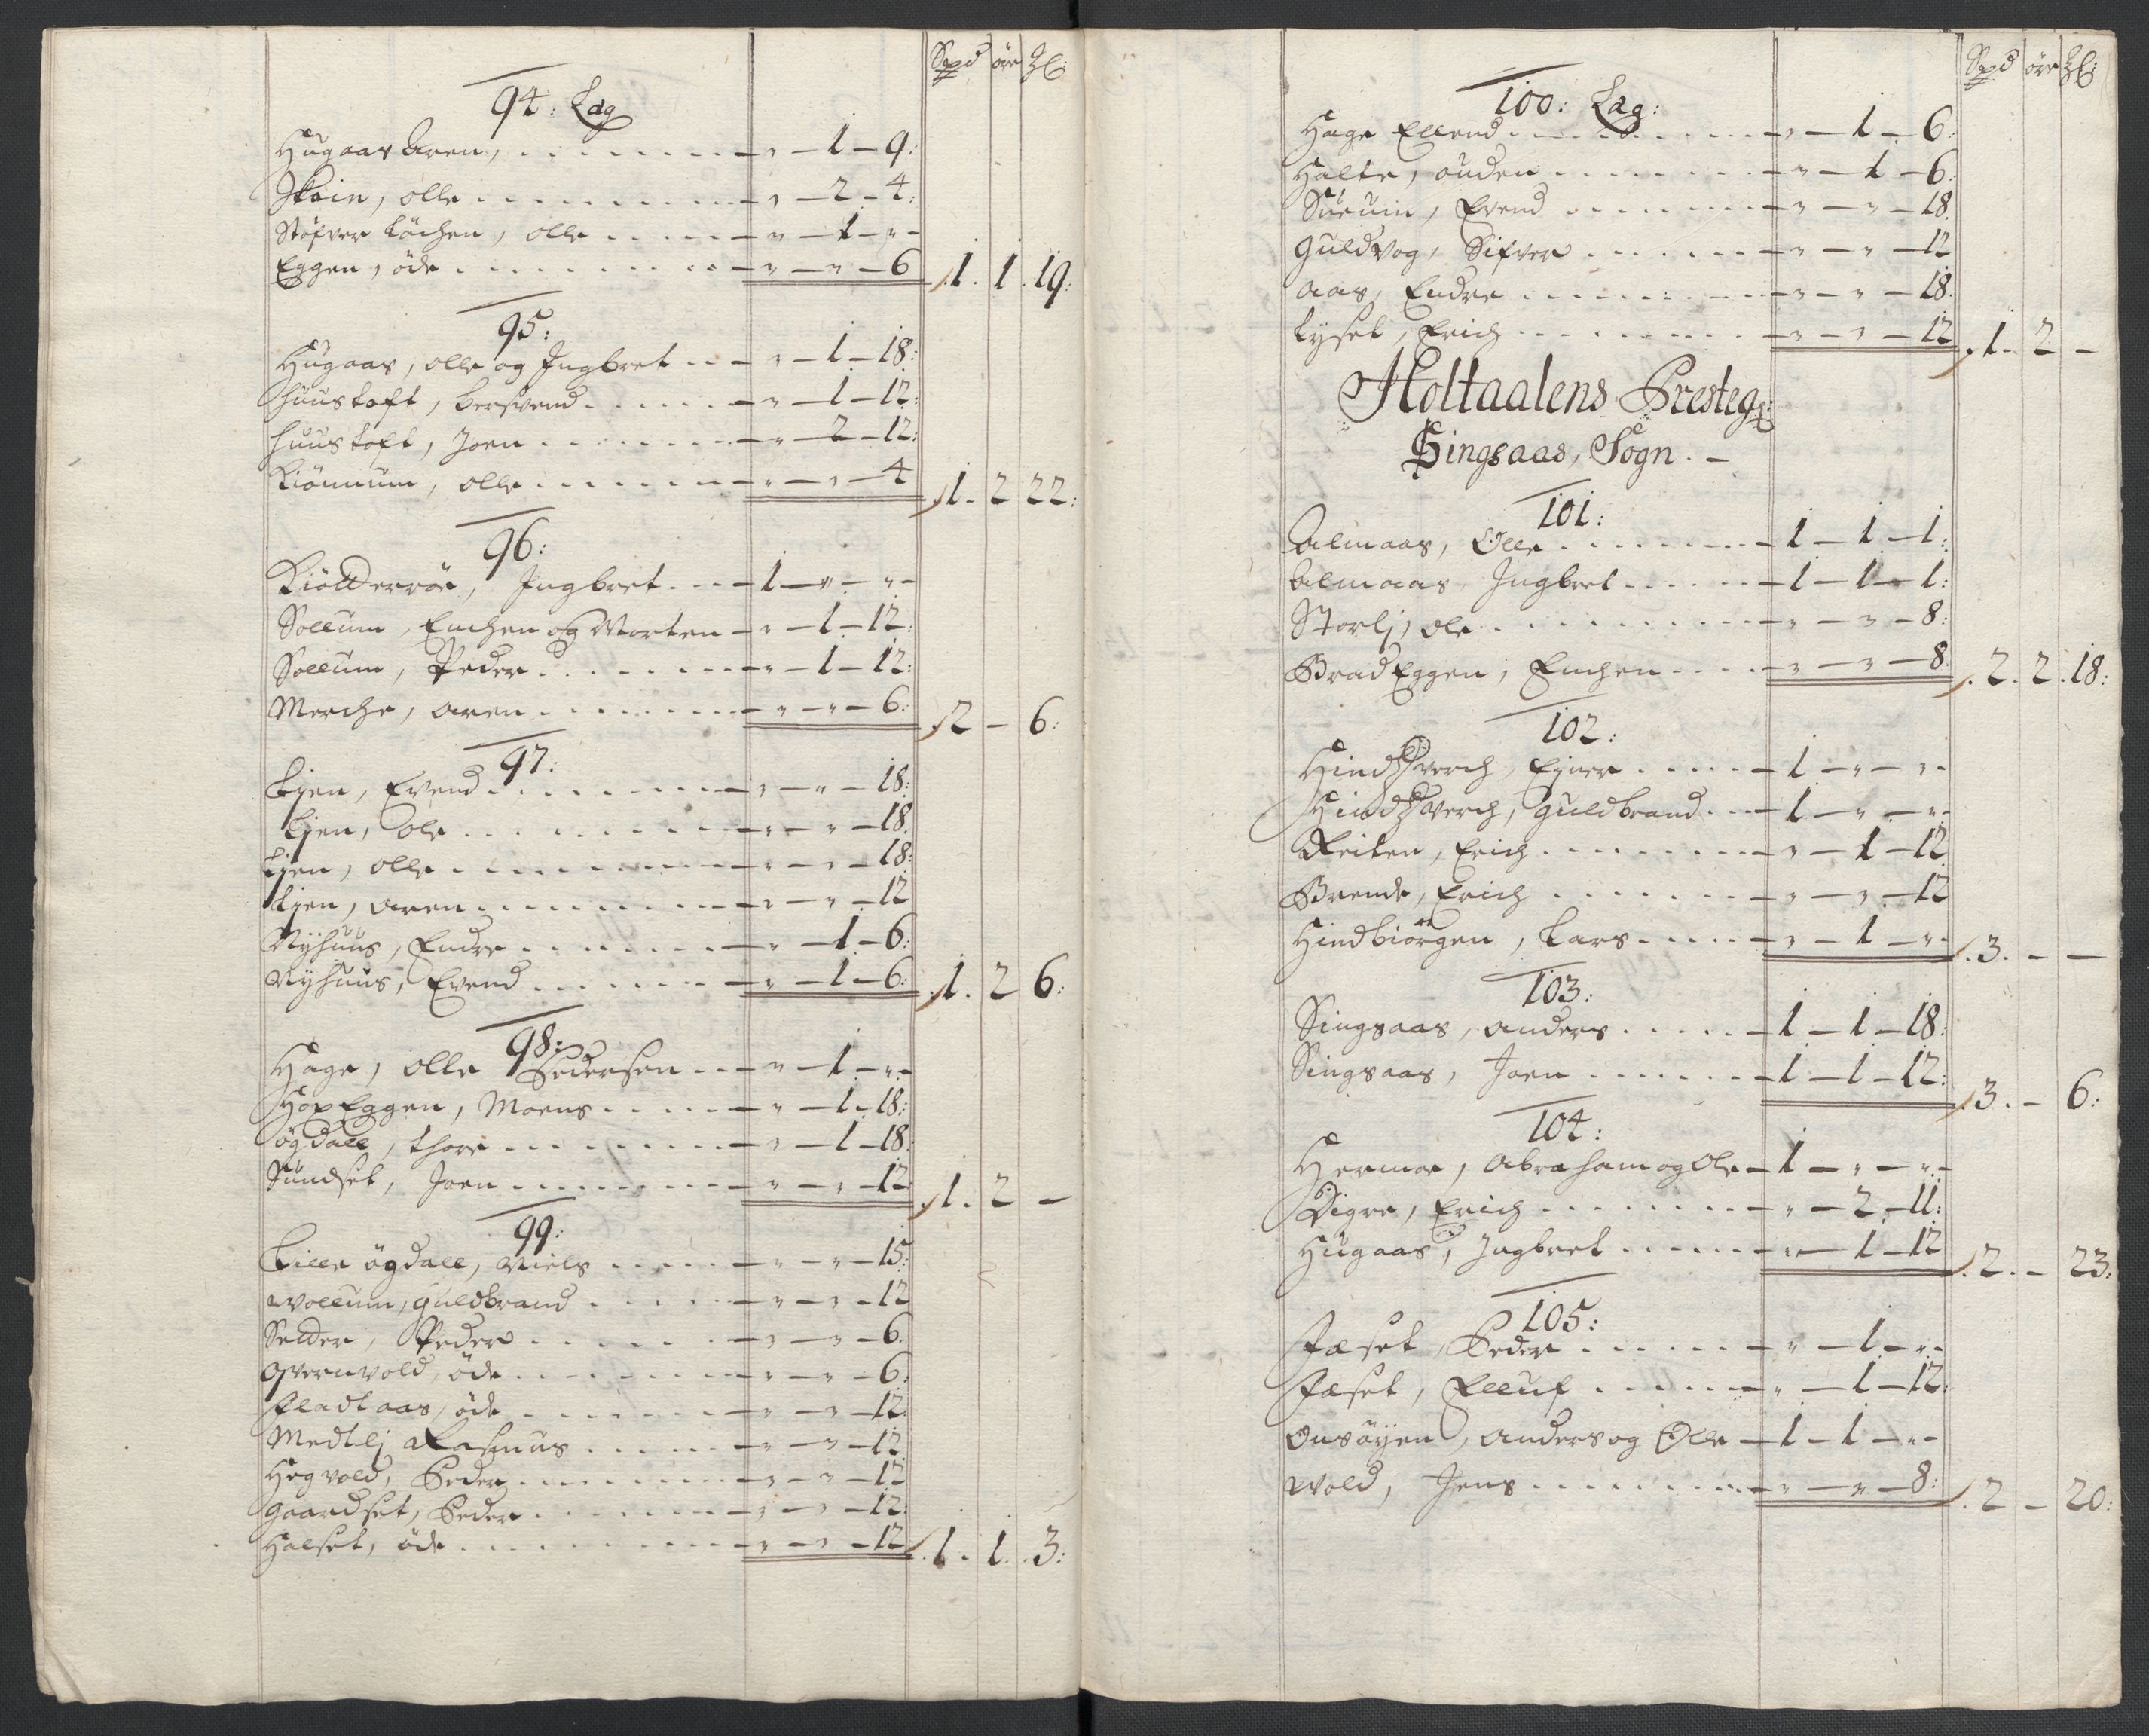 Spd öre ₰:
94: Lag
Hugaas Aren, . . . . . . . . — " — 1 — 9:
Skoin, olle . . . . . . . . . — " — 2 — 4:
Støfver Løchen, olle . . . . . — " — 1 — " —
Eggen, øde . . . . . . . . . — " — " — 6 1. 1. 19:
95:
Hugaas, olle og Ingbret . . — " — 1 — 18:
huustoft, bersvend . . . . . — " — 1 — 12:
huustoft, Joen . . . . . . . — " — 2 — 12:
Kiönnum, olle . . . . . . . — " — " — 4 1. 2 22:
96:
Kiölderröe, Ingbret . . . — 1 — " — " —
Sollum, Enchen og Morten — " — 1 — 12:
Sollum, Peder . . . . . . . — " — 1 — 12:
Merche, aren . . . . . . . . — " — " — 6: 2 — 6:
97:
Lien, Evend . . . . . . . . — " — " — 18:
Lien, ole . . . . . . . . . — " — " — 18
Lien, olle . . . . . . . . . — " — " — 18:
Lien, aren . . . . . . . . . — " — " — 12
Nyhuus, Endre . . . . . . . — " — 1 — 6:
Nyhuus, Evend . . . . . . . — " — 1 — 6: 1. 2 6:
98:
Hage, olle Pedersen . . . — " — 1 — " —
HopEggen, Moens . . . . . — " — 1 — 18:
øgdall, thore . . . . . . . — " — 1 — 18
Sundset, Joen . . . . . . . — " — " — 12 1. 2 —
99:
Lille øgdall, Niels . . . . . — " — " — 15:
Wollum, guldbrand . . . . — " — " — 12
Selder, Peder . . . . . . . — " — " — 6.
Qvernvold, øde . . . . . . . — " — " — 6:
Fladtaas, øde . . . . . . . — " — " — 12:
Medtlj Rasmus . . . . . . — " — " — 12
Hegvold, Peder . . . . . . . — " — " — 12
gaardset, Peder . . . . . . — " — " — 12:
Halset, øde . . . . . . . . . — " — " — 12 1. 1. 3:
Spd öre ₰:
100: Lag:
Hage Ellend . . . . . . . . — " — 1 — 6:
Halte, ouden . . . . . . . — " — 1 — 6:
Evend . . . . . . . — " — " — 18.
Guldvog, Sifver . . . . . . — " — " — 12
aas, Endre . . . . . . . . . — " — " — 18.
Lyset, Erich . . . . . . . . — " — " — 12 1. 2 —
Holtaalens Presteg:
Singsaas, Sogn. —
101:
Almaas, Olle . . . . . . . — 1 — 1 — 1:
almaas Ingbret . . . . . . — 1 — 1 — 1:
Storlj, ole . . . . . . . . . — " — " — 8:
BradEggen, Enchen . . . — " — " — 8. 2. 2. 18:
102:
Hindverch, Ejner . . . . . — 1 — " — " —
Hindverch, guldbrand . . — 1 — " — " —
Reiten, Erich . . . . . . . — " — 1 — 12
Brende, Erich . . . . . . . — " — " — 12
Hindbiörgen, Lars . . . . . — " — 1 — " — 3. — —
103:
Singsaas, anders . . . . . — 1 — 1 — 18:
Singsaas, Joen . . . . . . — 1 — 1 — 12: 3. — 6:
104:
Hermoe, Abraham og Ole — 1 — " — " —
Digre, Erich . . . . . . . . — " — 2 — 11:
Hugaas, Ingbret . . . . . . — " — 1 — 12 2. — 23:
105:
Fæset, Peder . . . . . . . — " — 1 — " —
Fæset, Elluf . . . . . . . — " — 1 — 12:
Onsøyen, anders og Olle — 1 — 1 — " —
Wold, Jens . . . . . . . . — " — " — 8: 2 — 20: